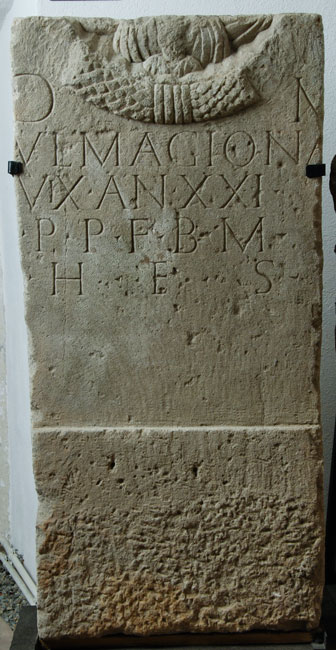 D M
VLMAGIONA
VIX·AN·XXI·
P·P·F·B·M·
H E S